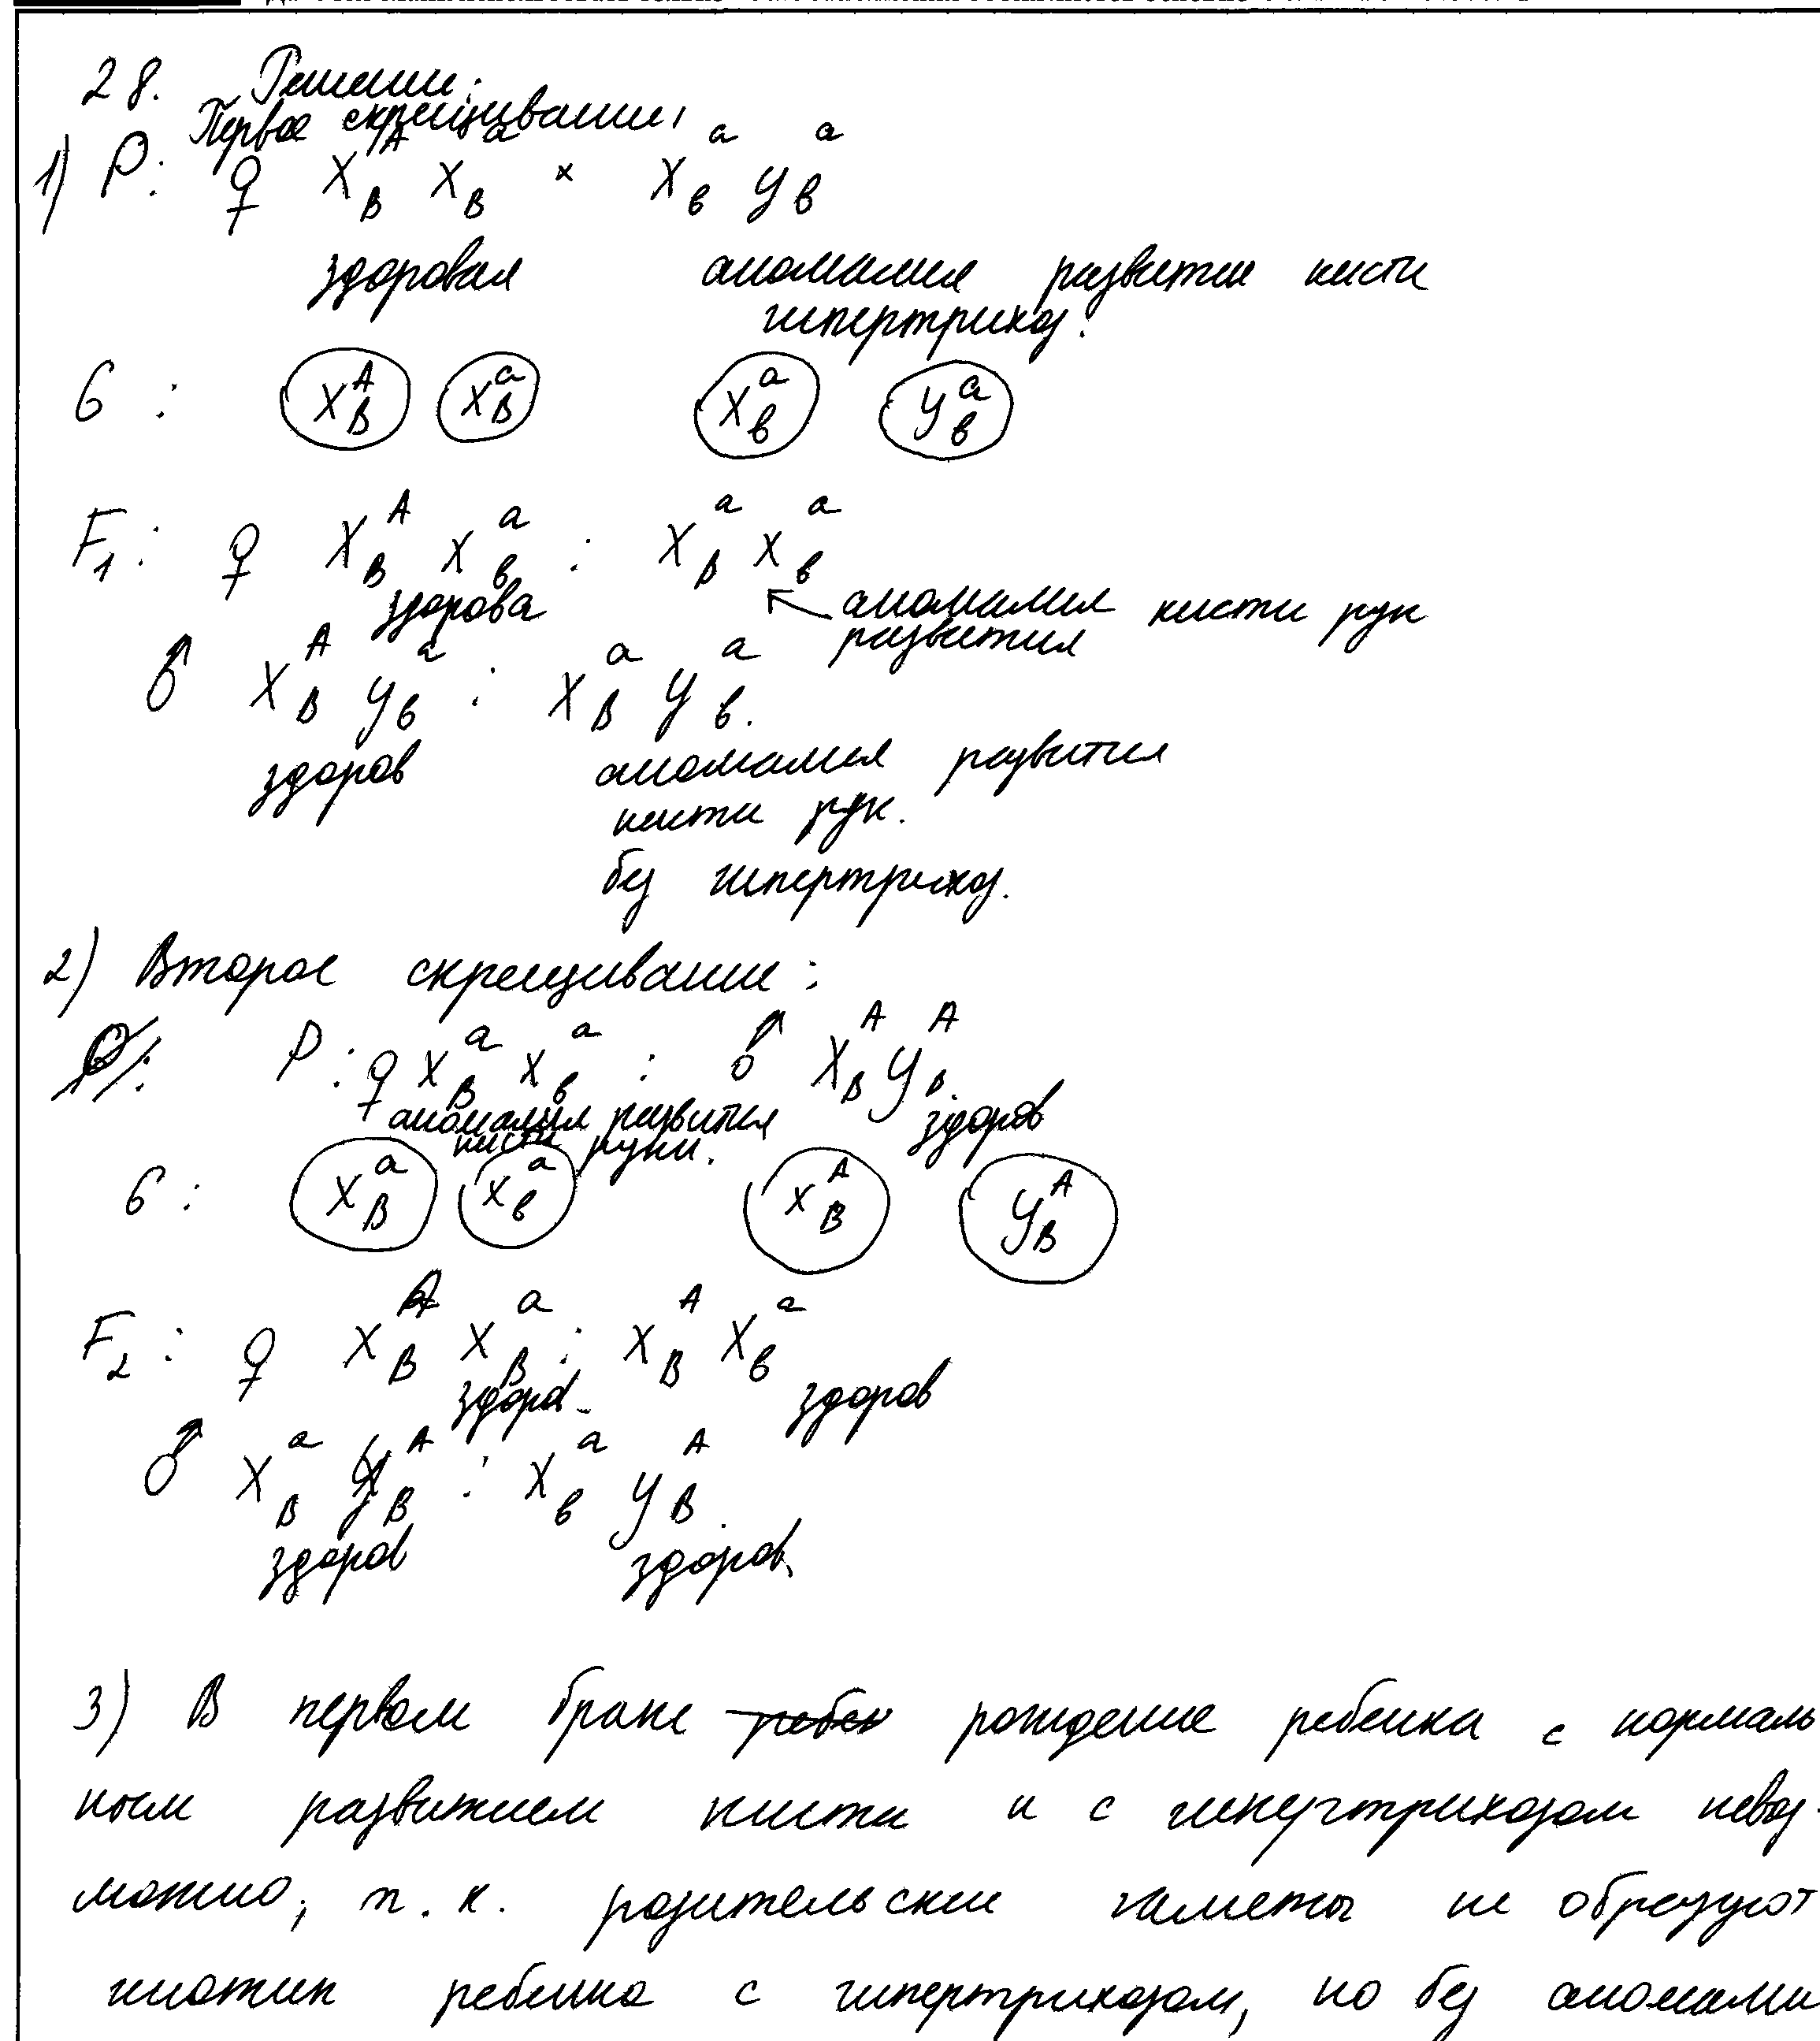 28. Решение:
Первое скрещивание:
1) P: ♀ X^A_B X^a_B × X^a_в У^a_в
здоровая аномалия развитие кисти
гипертрихоз.
G : X^A_B X^a_B X^a_в У^a_в
F₁: ♀ X^A_B X^a_в : X^a_B X^a_в
здорова аномалия кисти рук
развития
♂ X^A_B У^a_в : X^a_B У^a_в.
здоров аномалия развития
кисти рук.
без гипертрихоз.
2) Второе скрещивание:
P: ♀ X^a_B X^a_в : ♂ X^A_B У^A_B.
аномалия развития здоров
кисти руки.
G : X^a_B X^a_в X^A_B У^A_B
F₂ : ♀ X^A_B X^a_B : X^A_B X^a_в
здоров здоров
♂ X^a_B У^A_B : X^a_в У^A_B.
здоров здоров.
3) В первом браке рождение ребенка с нормаль
ным развитием кисти и с гипертрихозом невоз-
можно, т.к. родительские гаметы не образуют
ребенка с гипертрихозом, но без аномалии